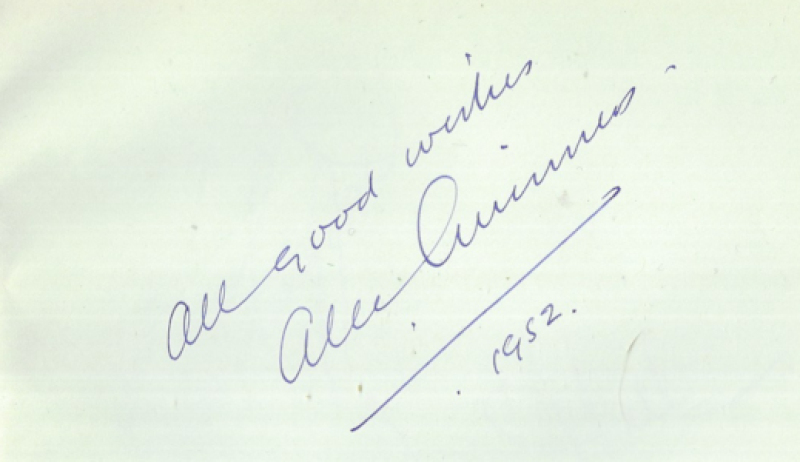 All good wishes
Alec Guinness.
1952.